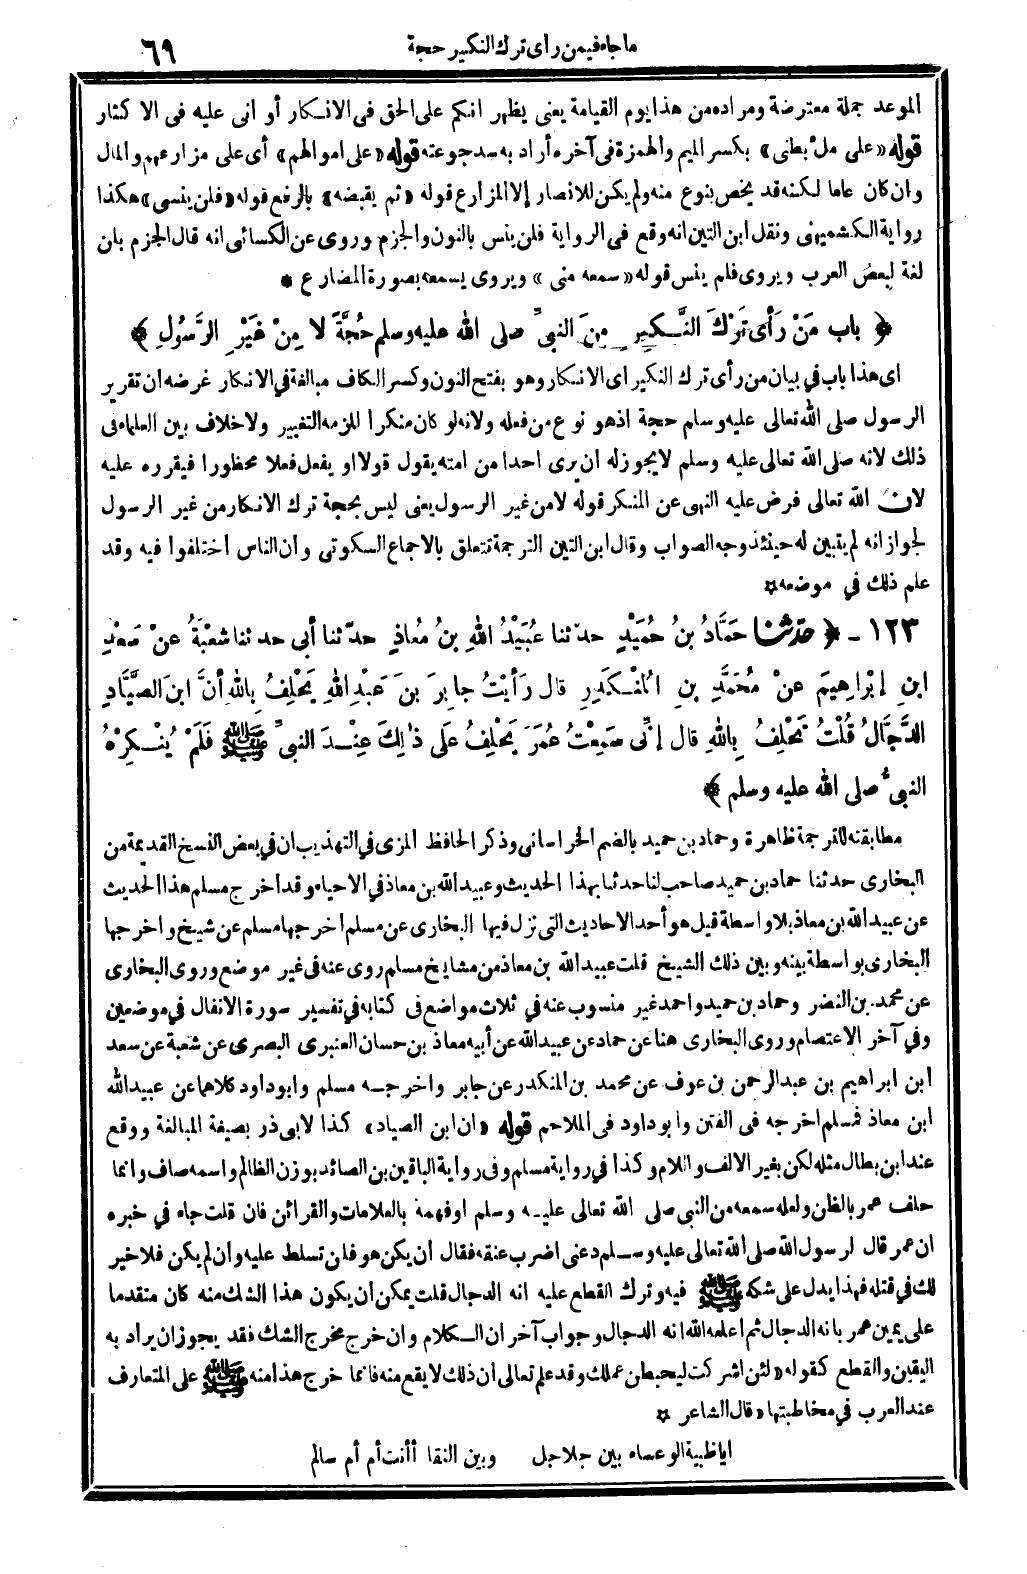 ما جاء فيمن رأى ترك النكير حجة
٦٩
الموعد جملة معترضة ومراده من هذا يوم القيامة يعنى يظهر انكم على الحق فى الانكار أو انى عليه فى الا كثار
قوله «على ملْ بطنى» بكسر الميم والهمزة فى آخره أراد به سد جوعته قوله «على اموالهم» أى على مزارعهم والمال
وان كان عاما لكنه قد يخص بنوع منه ولم يكن للانصار إلا المزارع قوله «ثم يقبضه» بالرفع قوله «فلن ينسى» هكذا
رواية الكشميهنى ونقل ابن التين انه وقع فى الرواية فلن ينس بالنون والجزم وروى عن الكسائى انه قال الجزم بلن
لغة لبعض العرب ويروى فلم ينس قوله «سمعه منى» ويروى يسمعه بصورة المضارع *
﴿ باب مَنْ رَأى تَرْكَ النَّكِيرِ مِنَ النبىِّ صلى الله عليه وسلم حُجَّةً لا مِنْ غَيْرِ الرَّسُولِ ﴾
اى هذا باب فى بيان من رأى ترك النكير اى الانكار وهو بفتح النون وكسر الكاف مبالغة فى الانكار غرضه ان تقرير
الرسول صلى الله تعالى عليه وسلم حجة اذ هو نوع من فعله ولانه لو كان منكرا للزمه التغيير ولا خلاف بين العلماء فى
ذلك لانه صلى الله تعالى عليه وسلم لا يجوز له ان يرى احدا من امته يقول قولا او يفعل فعلا محظورا فيقرره عليه
لان الله تعالى فرض عليه النهى عن المنكر قوله لا من غير الرسول يعنى ليس بحجة ترك الانكار من غير الرسول
لجواز انه لم يتبين له حينئذ وجه الصواب وقال ابن التين الترجمة تتعلق بالاجماع السكوتى وان الناس اختلفوا فيه وقد
علم ذلك فى موضعه *
١٢٣ - ﴿ حدثنا حَمَّادُ بنُ حُمَيْدٍ حدّثنا عُبَيْدُ اللهِ بنُ مُعاذٍ حدّثنا أبى حدثنا شعْبَةُ عنْ سَعْدِ
ابنِ إبْراهِيمَ عنْ مُحَمَّدِ بنِ المُنْكَدِرِ قال رَأيْتُ جابِرَ بنَ عَبْدِ اللهِ يَحْلِفُ باللهِ أنَّ ابنَ الصَّيَّادِ
الدَّجَّالُ قُلْتُ تَحْلِفُ باللهِ قال إنِّى سَمِعْتُ عُمَرَ يَحْلِفُ عَلَى ذٰلِكَ عِنْدَ النبىِّ ﷺ فَلَمْ يُنْكِرْهُ
النبىُّ صلى الله عليه وسلم ﴾
مطابقته للترجمة ظاهرة وحماد بن حميد بالضم الخراسانى وذكر الحافظ المزى فى التهذيب ان فى بعض النسخ القديمة من
البخارى حدثنا حماد بن حميد صاحب لنا حدثنا بهذا الحديث وعبيد الله بن معاذ فى الاحياء وقد اخرج مسلم هذا الحديث
عن عبيد الله بن معاذ بلا واسطة قيل هو أحد الاحاديث التى نزل فيها البخارى عن مسلم اخرجها مسلم عن شيخ واخرجها
البخارى بواسطة بينه وبين ذلك الشيخ قلت عبيد الله بن معاذ من مشايخ مسلم روى عنه فى غير موضع وروى البخارى
عن محمد بن النضر وحماد بن حميد واحمد غير منسوب عنه فى ثلاث مواضع فى كتابه فى تفسير سورة الانفال فى موضعين
وفى آخر الاعتصام وروى البخارى هنا عن حماد عن عبيد الله عن أبيه معاذ بن حسان العنبرى البصرى عن شعبة عن سعد
ابن ابراهيم بن عبد الرحمن بن عوف عن محمد بن المنكدر عن جابر واخرجه مسلم وابو داود كلاهما عن عبيد الله
ابن معاذ فمسلم اخرجه فى الفتن وابو داود فى الملاحم قوله «ان ابن الصياد» كذا لابى ذر بصيغة المبالغة ووقع
عند ابن بطال مثله لكن بغير الالف واللام وكذا فى رواية مسلم وفى رواية الباقين بن الصائد بوزن الظالم واسمه صاف وانما
حلف عمر بالظن ولعله سمعه من النبى صلى الله تعالى عليه وسلم او فهمه بالعلامات والقرائن فان قلت جاء فى خبره
ان عمر قال لرسول الله صلى الله تعالى عليه وسلم دعنى اضرب عنقه فقال ان يكن هو فلن تسلط عليه وان لم يكن فلا خير
لك فى قتله فهذا يدل على شكه ﷺ فيه وترك القطع عليه انه الدجال قلت يمكن ان يكون هذا الشك منه كان متقدما
على يمين عمر بانه الدجال ثم اعلمه الله انه الدجال وجواب آخر ان الكلام وان خرج مخرج الشك فقد يجوز ان يراد به
اليقين والقطع كقوله «لئن اشركت ليحبطن عملك وقد علم تعالى ان ذلك لا يقع منه فانما خرج هذا منه ﷺ على المتعارف
عند العرب فى مخاطبتها «قال الشاعر *
ايا ظبية الوعساء بين جلاجل وبين النقا أأنت أم أم سالم